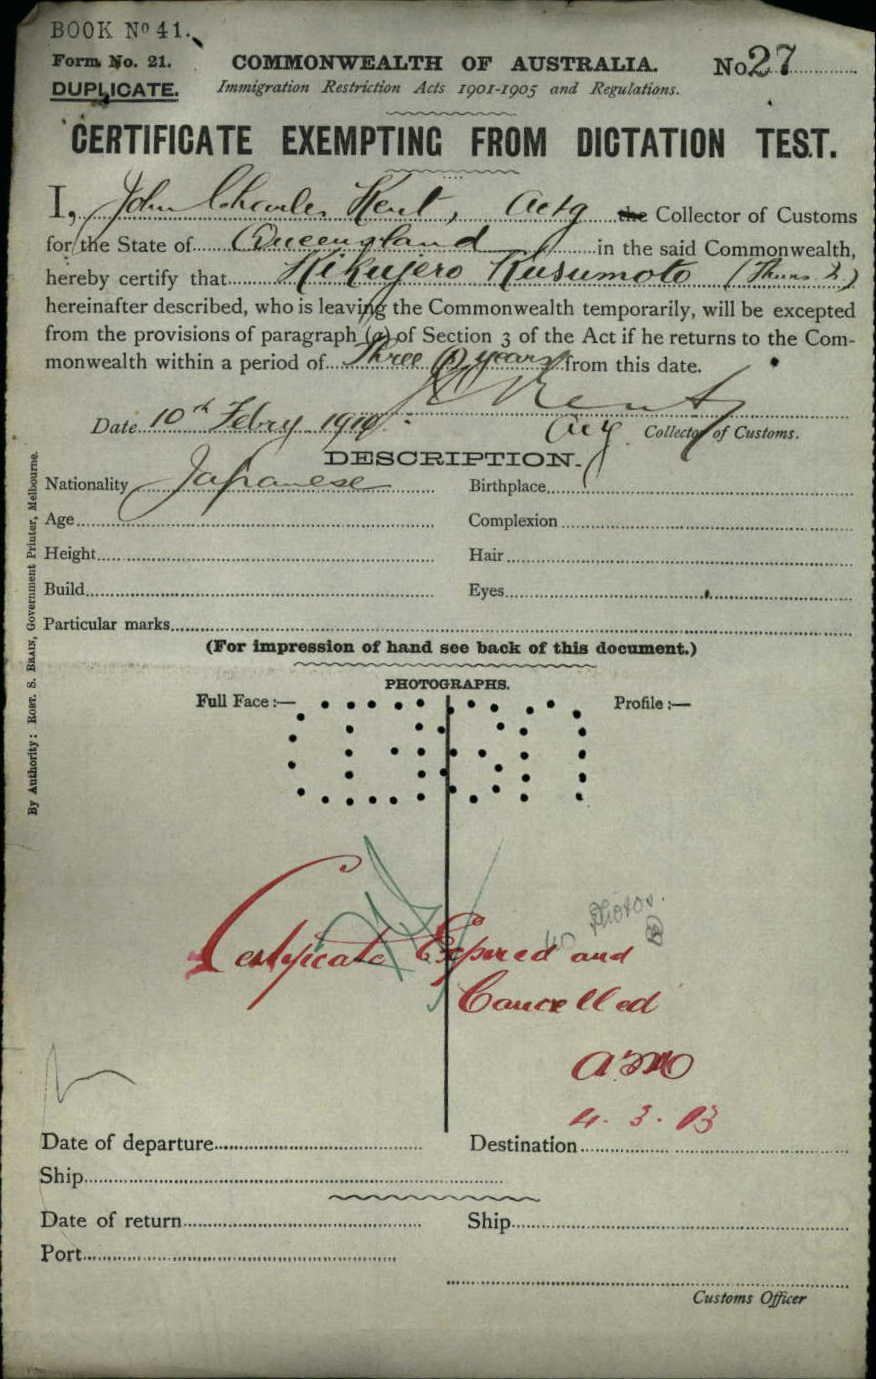 BOOK No 41.
Form No. 21. COMMONWEALTH OF AUSTRALIA. No 27
DUPLICATE. Immigration Restriction Acts 1901-1905 and Regulations.
CERTIFICATE EXEMPTING FROM DICTATION TEST.
I, John Charles Kent, Actg the Collector of Customs
for the State of Queensland in the said Commonwealth,
hereby certify that Kikujero Kusumoto (Thurs I.)
hereinafter described, who is leaving the Commonwealth temporarily, will be excepted
from the provisions of paragraph (a) of Section 3 of the Act if he returns to the Com-
monwealth within a period of Three (3) years from this date.
J C Kent
Date 10th Febry 1910. Actg Collector of Customs.
DESCRIPTION.
Nationality Japanese Birthplace
Age Complexion
Height Hair
Build Eyes
Particular marks
(For impression of hand see back of this document.)
PHOTOGRAPHS.
Full Face :— Profile :—
no Photos.
Certificate Expired and
Cancelled
4. 3. 13
Date of departure Destination
Ship
Date of return Ship
Port
Customs Officer
By Authority: ROBT. S. BRAIN, Government Printer, Melbourne.